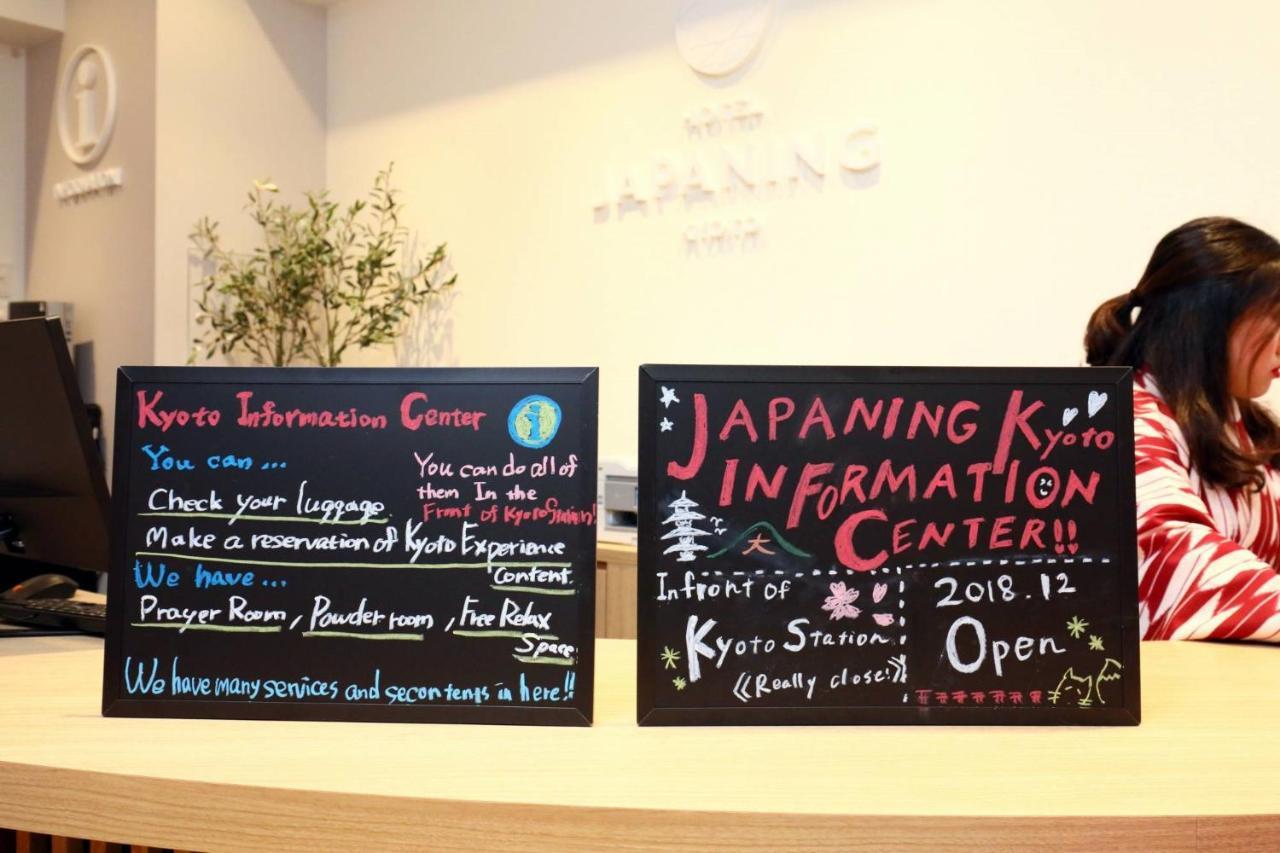 JAPANING
Kyoto Information Center
i
You can...
You can do all of
them In the
Front of Kyoto Station!
Check your luggage.
Make a reservation of Kyoto Experience
Content.
We have...
Prayer Room, Powder room, Free Relax
Space
We have many services and secontents in here!!
JAPANING Kyoto
INFORMATION
CENTER!!
大
Infront of
Kyoto Station
《Really close!》
2018.12
Open